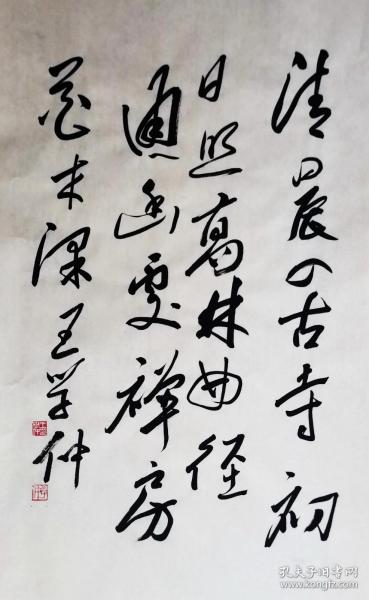 清晨入古寺初
日照高林曲徑
通幽處禪房
花木深王学仲
孔夫子旧书网
www.kongfz.com